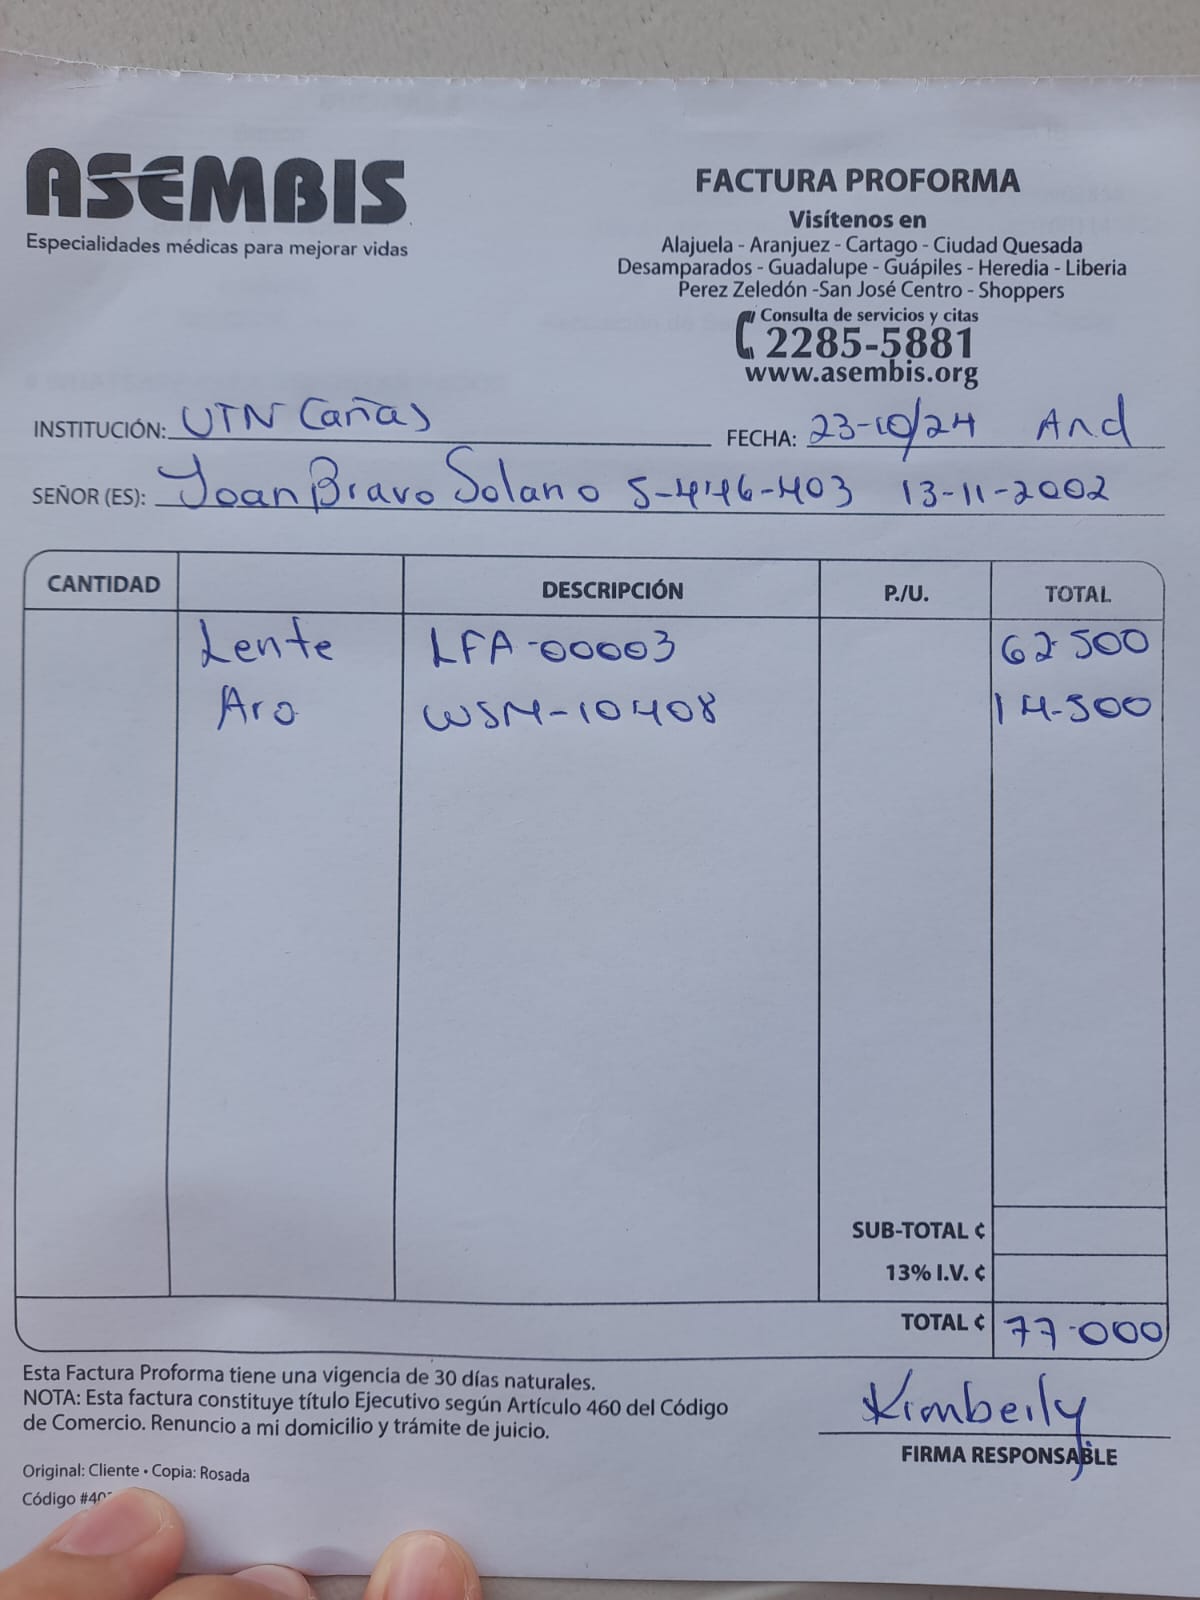 ASEMBIS
Especialidades médicas para mejorar vidas
FACTURA PROFORMA
Visítenos en
Alajuela - Aranjuez - Cartago - Ciudad Quesada
Desamparados - Guadalupe - Guápiles - Heredia - Liberia
Perez Zeledón -San José Centro - Shoppers
Consulta de servicios y citas
2285-5881
www.asembis.org
INSTITUCIÓN: UTN Cañas FECHA: 23-10/24 And
SEÑOR (ES): Yoan Bravo Solano 5-446-403 13-11-2002
CANTIDAD DESCRIPCIÓN P./U. TOTAL
Lente LFA-00003 62.500
Aro WSM-10408 14-500
SUB-TOTAL ¢
13% I.V. ¢
TOTAL ¢ 77-000
Esta Factura Proforma tiene una vigencia de 30 días naturales.
NOTA: Esta factura constituye título Ejecutivo según Artículo 460 del Código
de Comercio. Renuncio a mi domicilio y trámite de juicio.
Kimberly
FIRMA RESPONSABLE
Original: Cliente • Copia: Rosada
Código